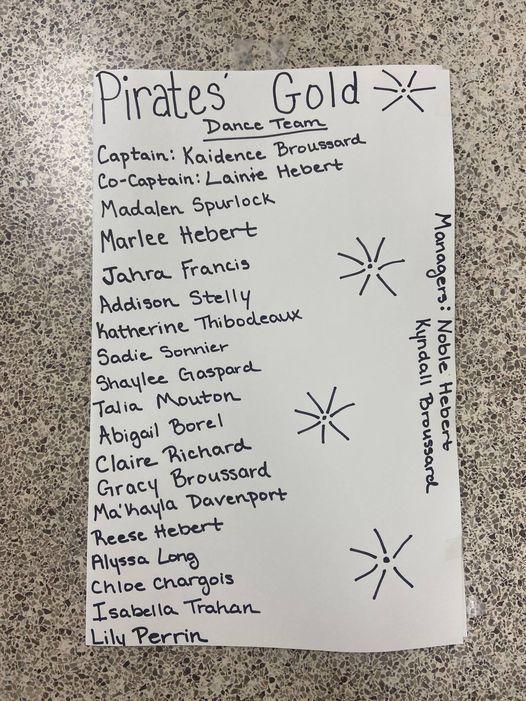 Pirates' Gold
Dance Team
Captain: Kaidence Broussard
Co-Captain: Lainie Hebert
Madalen Spurlock
Marlee Hebert
Jahra Francis
Addison Stelly
Katherine Thibodeaux
Sadie Sonnier
Shaylee Gaspard
Talia Mouton
Abigail Borel
Claire Richard
Gracy Broussard
Ma'Kayla Davenport
Reese Hebert
Alyssa Long
Chloe Chargois
Isabella Trahan
Lily Perrin
Managers: Noble Hebert
Kyndall Broussard